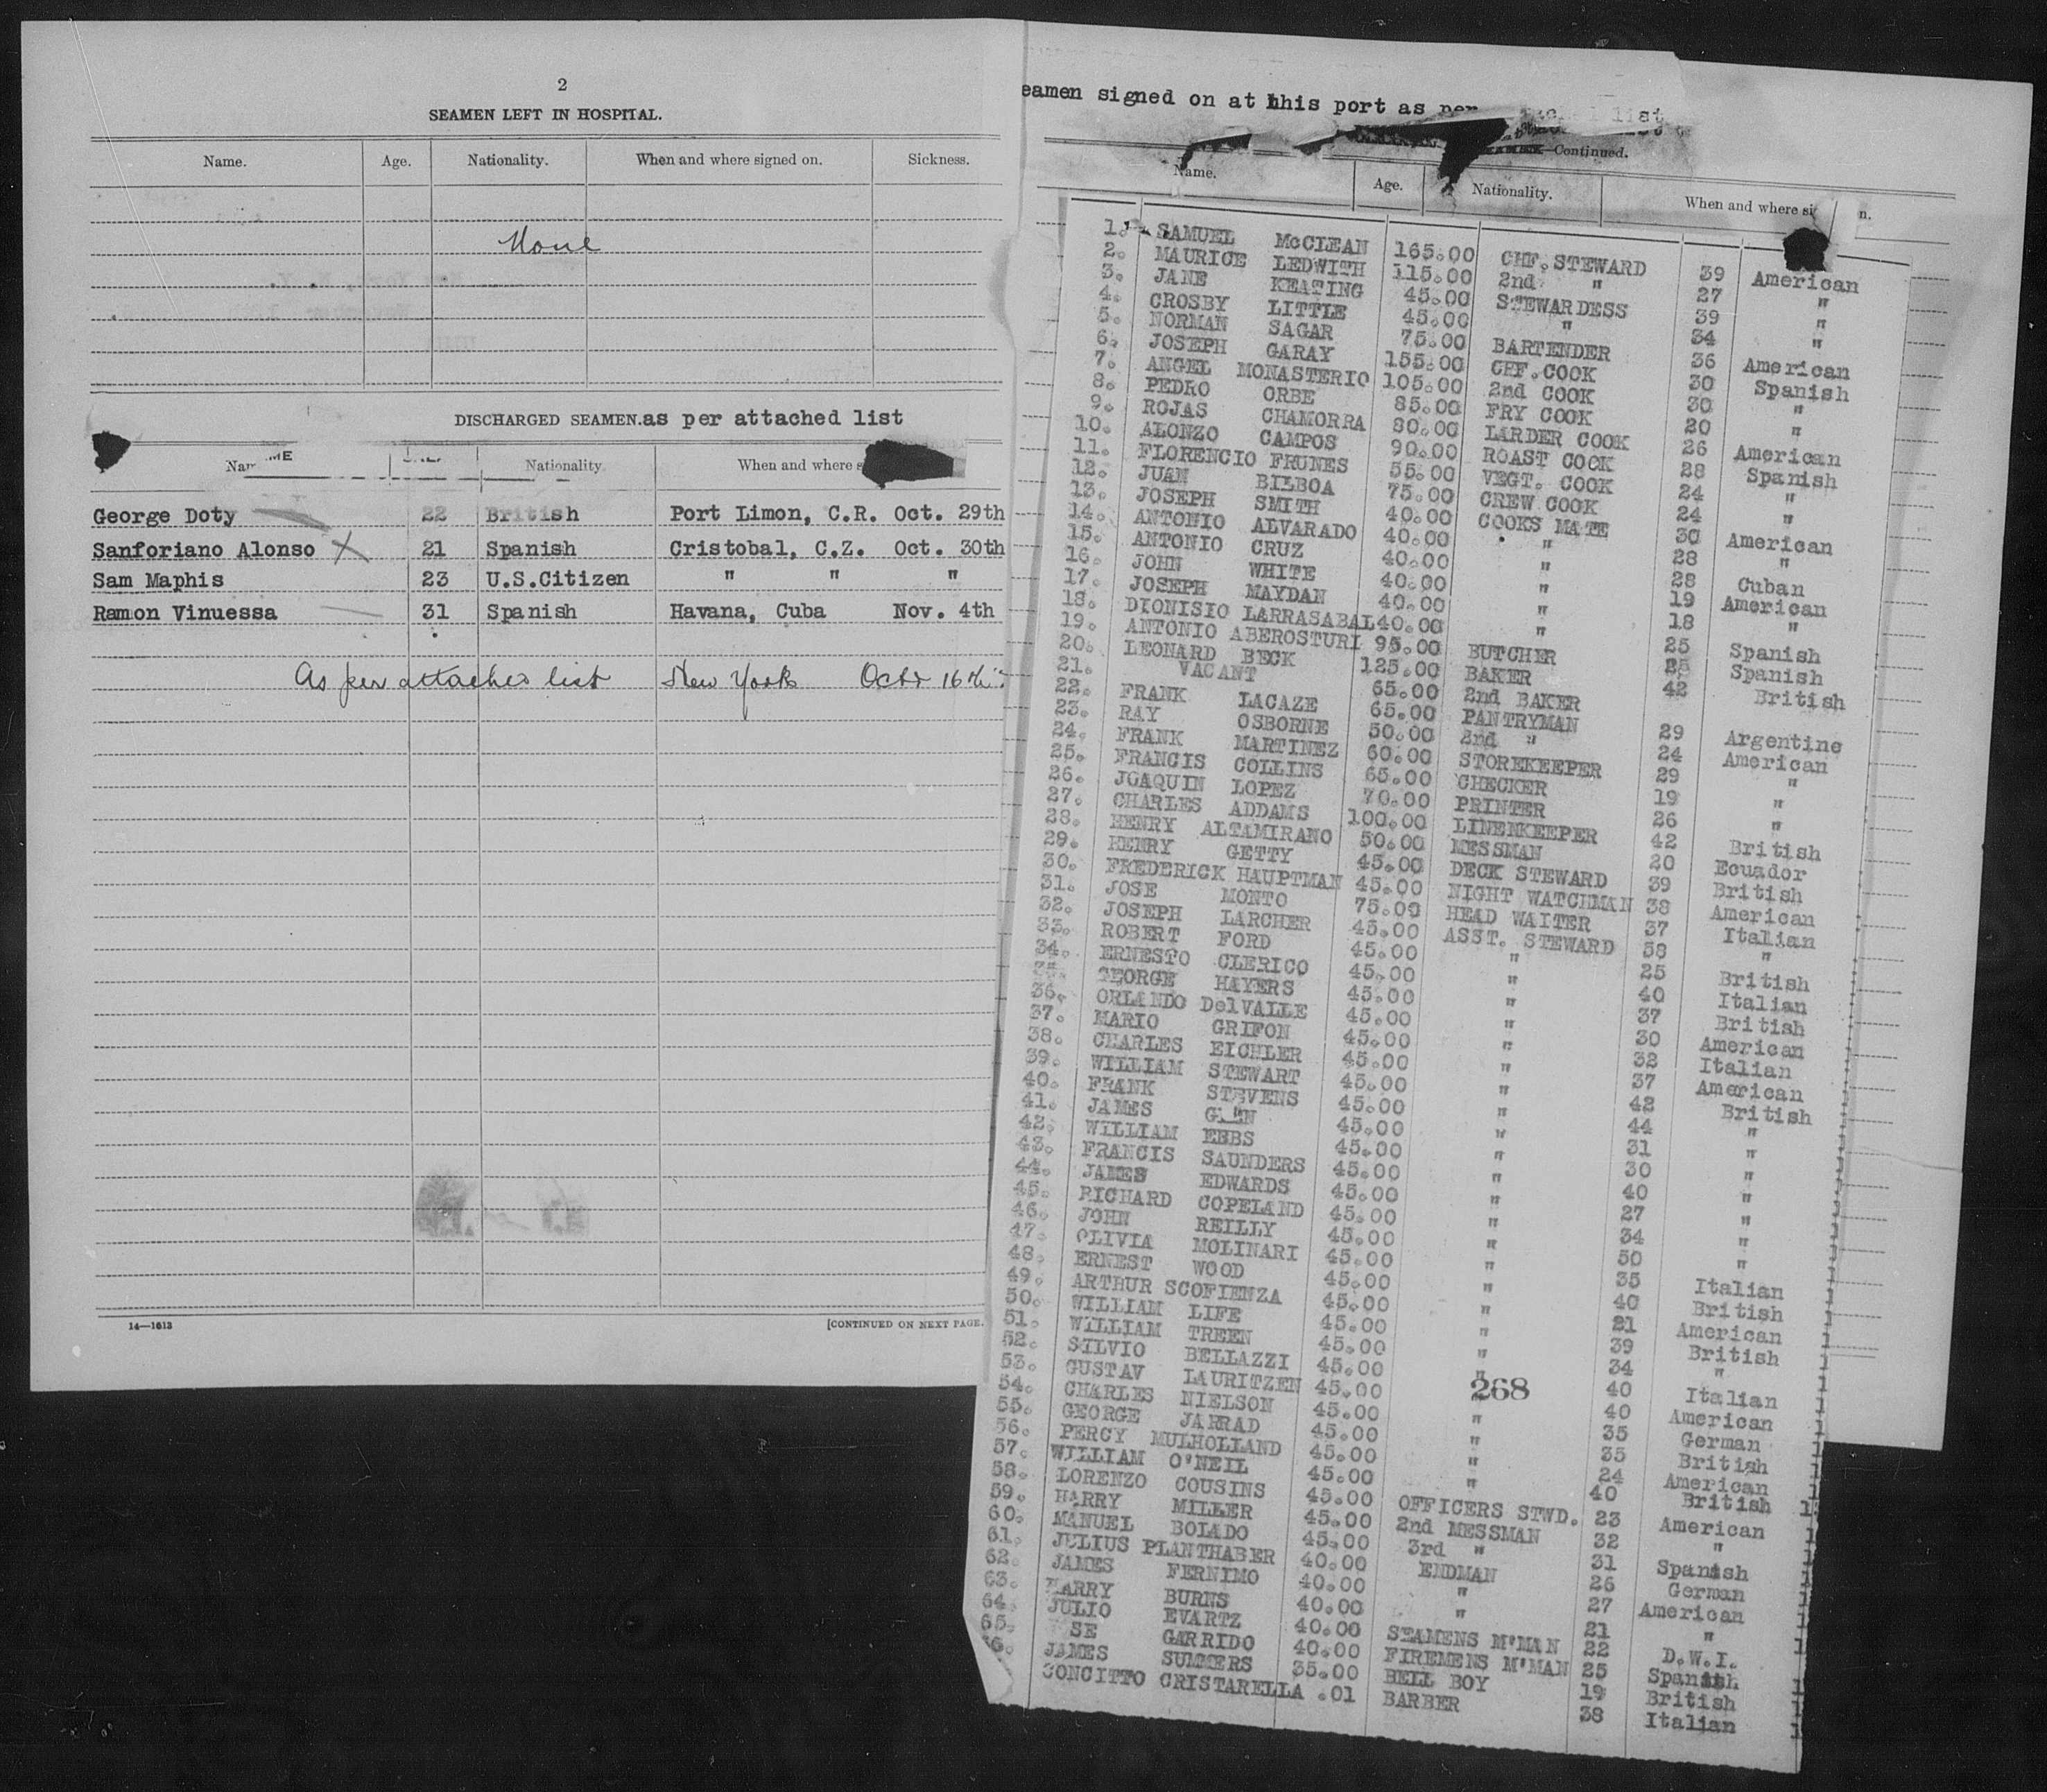 2
SEAMEN LEFT IN HOSPITAL.
Name. Age. Nationality. When and where signed on. Sickness.
None
DISCHARGED SEAMEN. as per attached list
Nationality. When and where
George Doty 22 British Port Limon, C.R. Oct. 29th
Sanforiano Alonso 21 Spanish Cristobal, C.Z. Oct. 30th
Sam Maphis 23 U.S.Citizen " " "
Ramon Vinuessa 31 Spanish Havana, Cuba Nov. 4th
As per attached list New York Octr 16th
14—1613
[CONTINUED ON NEXT PAGE.
eamen signed on at this port as per list
—Continued.
Name. Age. Nationality. When and where si n.
1. SAMUEL McCLEAN 165.00 CHF. STEWARD 39 American
2. MAURICE LEDWITH 115.00 2nd " 27 "
3. JANE KEATING 45.00 STEWARDESS 39 "
4. CROSBY LITTLE 45.00 " 34 "
5. NORMAN SAGAR 75.00 BARTENDER 36 American
6. JOSEPH GARAY 155.00 CHF. COOK 30 Spanish
7. ANGEL MONASTERIO 105.00 2nd COOK 30 "
8. PEDRO ORBE 85.00 FRY COOK 20 "
9. ROJAS CHAMORRA 80.00 LARDER COOK 26 American
10. ALONZO CAMPOS 90.00 ROAST COOK 28 Spanish
11. FLORENCIO FRUNES 55.00 VEGT. COOK 24 "
12. JUAN BILBOA 75.00 CREW COOK 24 "
13. JOSEPH SMITH 40.00 COOKS MATE 30 American
14. ANTONIO ALVARADO 40.00 " 28 "
15. ANTONIO CRUZ 40.00 " 28 Cuban
16. JOHN WHITE 40.00 " 19 American
17. JOSEPH MAYDAN 40.00 " 18 "
18. DIONISIO LARRASABAL 40.00 " 25 Spanish
19. ANTONIO ABEROSTURI 95.00 BUTCHER 25 Spanish
20. LEONARD BECK 125.00 BAKER 42 British
21. VACANT 65.00 2nd BAKER
22. FRANK LACAZE 65.00 PANTRYMAN 29 Argentine
23. RAY OSBORNE 50.00 2nd " 24 American
24. FRANK MARTINEZ 60.00 STOREKEEPER 29 "
25. FRANCIS COLLINS 65.00 CHECKER 19 "
26. JOAQUIN LOPEZ 70.00 PRINTER 26 "
27. CHARLES ADDAMS 100.00 LINENKEEPER 42 British
28. HENRY ALTAMIRANO 50.00 MESSMAN 20 Ecuador
29. HENRY GETTY 45.00 DECK STEWARD 39 British
30. FREDERICK HAUPTMAN 45.00 NIGHT WATCHMAN 38 American
31. JOSE MONTO 75.00 HEAD WAITER 37 Italian
32. JOSEPH LARCHER 45.00 ASST. STEWARD 58 "
33. ROBERT FORD 45.00 " 25 British
34. ERNESTO CLERICO 45.00 " 40 Italian
35. GEORGE HAYERS 45.00 " 37 British
36. ORLANDO DelVALLE 45.00 " 30 American
37. MARIO GRIFON 45.00 " 32 Italian
38. CHARLES EICHLER 45.00 " 37 American
39. WILLIAM STEWART 45.00 " 42 British
40. FRANK STEVENS 45.00 " 44 "
41. JAMES 45.00 " 31 "
42. WILLIAM EBBS 45.00 " 30 "
43. FRANCIS SAUNDERS 45.00 " 40 "
44. JAMES EDWARDS 45.00 " 27 "
45. RICHARD COPELAND 45.00 " 34 "
46. JOHN REILLY 45.00 " 50 "
47. OLIVIA MOLINARI 45.00 " 35 Italian
48. ERNEST WOOD 45.00 " 40 British
49. ARTHUR SCOFIENZA 45.00 " 21 American
50. WILLIAM LIFE 45.00 " 39 British
51. WILLIAM TREEN 45.00 " 34 "
52. SILVIO BELLAZZI 45.00 " 40 Italian
53. GUSTAV LAURITZEN 45.00 " 40 American
268
54. CHARLES NIELSON 45.00 " 35 German
55. GEORGE JARRAD 45.00 " 35 British
56. PERCY MULHOLLAND 45.00 " 24 American
57. WILLIAM O'NEIL 45.00 " 40 British
58. LORENZO COUSINS 45.00 OFFICERS STWD. 23 American
59. HARRY MILLER 45.00 2nd MESSMAN 32 "
60. MANUEL BOLADO 45.00 3rd " 31 Spanish
61. JULIUS PLANTHABER 40.00 ENDMAN 26 German
62. JAMES FERNIMO 40.00 " 27 American
63. HARRY BURNS 40.00 " 21 "
64. JULIO EVARTZ 40.00 SEAMENS M'MAN 22 D.W.I.
65. SE GARRIDO 40.00 FIREMENS M'MAN 25 Spanish
66. JAMES SUMMERS 35.00 BELL BOY 19 British
CONCITTO CRISTARELLA .01 BARBER 38 Italian